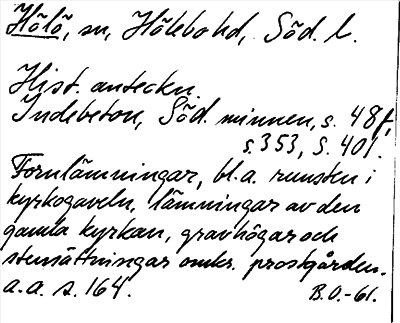 Hölö, sn, Hölebo hd, Söd. l.
Hist. anteckn.
Indebetou, Söd. minnen, s. 48 f,
s. 353, S. 401.
Fornlämningar, bl.a. runsten i
kyrkogaveln, lämningar av den
gamla kyrkan, gravhögar och
stensättningar omkr. prostgården.
a.a. s. 164.
B.O.-61.